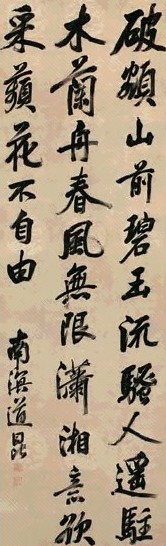 破額山前碧玉流騷人遙駐
木蘭舟春風無限瀟湘意欲
采蘋花不自由
南溟道昆